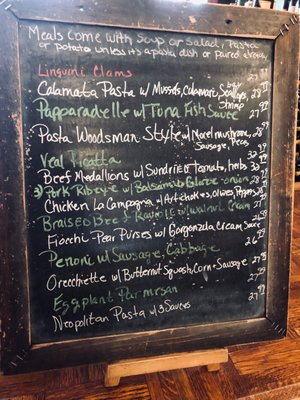 Meals come with Soup or Salad, Pasta
or potato unless its a pasta dish or paired already
Linguini Clams 27
Calamata Pasta w/ Mussels, Calamari, Scallops, Shrimp 28
Papparadelle w/ Tuna Fish Sauce 27.99
Pasta Woodsman Style w/ Morel mushrooms, Sausage, Peas 28.99
Veal Picatta 32.99
Beef Medallions w/ Sundried tomato, herb 32
Pork Ribeye w/ Balsamic Glaze onion 28
Chicken La Campagna w/ Artichokes, olives, Peppers
Braised Beef Ravioli w/ walnut Cream 27
Fiocchi-Pear Purses w/ Gorgonzola Cream Sauce 26.99
Penoni w/ Sausage, Cabbage 26.99
Orecchiette w/ Butternut Squash, Corn-Sausage 27
Eggplant Parmesan 27.99
Neopolitan Pasta w/ 3 Sauces 27.99